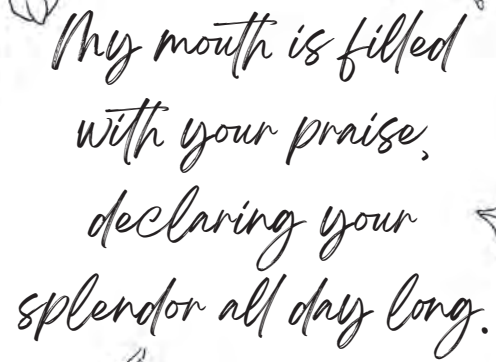 My mouth is filled
with your praise,
declaring your
splendor all day long.